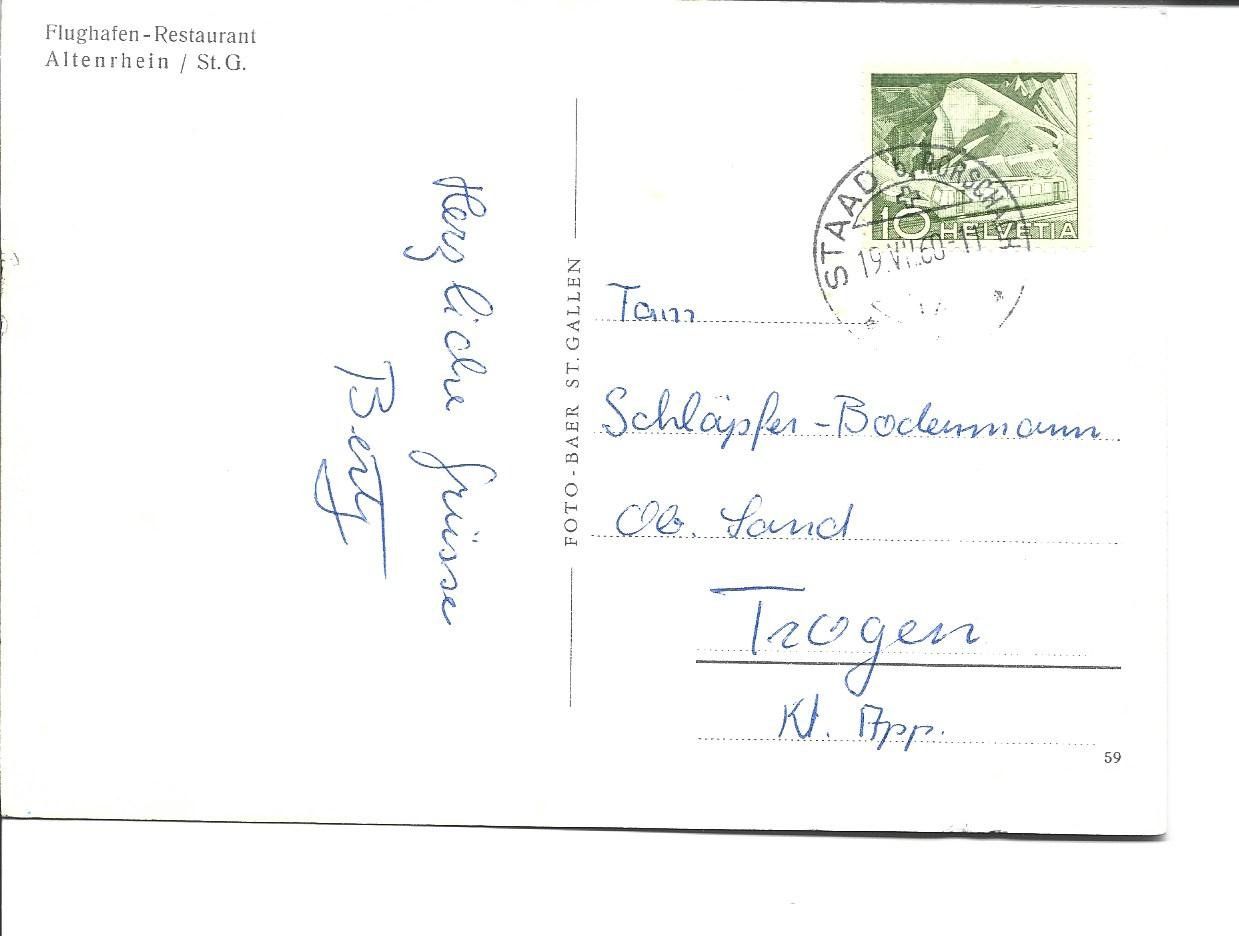 Flughafen-Restaurant
Altenrhein / St. G.
Herzliche Grüsse
Berty
FOTO-BAER ST. GALLEN
10 HELVETIA
STAAD b. RORSCHACH
19.VII.60-11
Fam
Schläpfer-Bodenmann
Ob. Sand
Trogen
Kt. App.
59